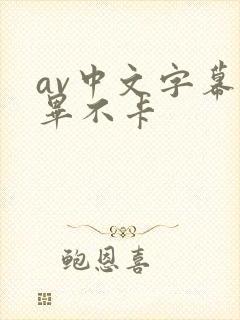 av中文字幕
畢不卡
鲍恩喜